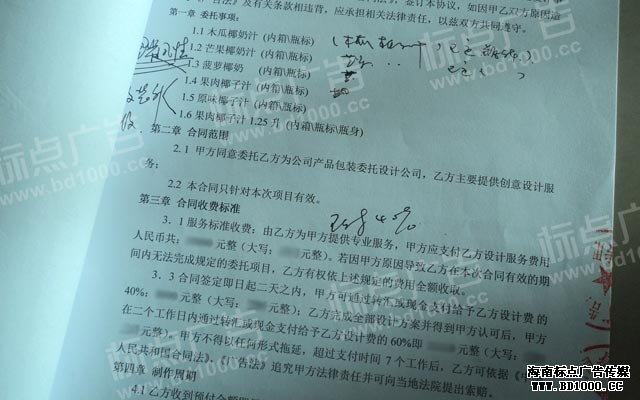 告法》及有关条款相违背，应承担相关法律责任，以兹双方共同遵守。
第一章 委托事项：
1.1 木瓜椰奶汁 （内箱\瓶标）
1.2 芒果椰奶汁 （内箱\瓶标）
1.3 菠萝椰奶 （内箱\瓶标）
1.4 果肉椰子汁 （内箱\瓶标）
1.5 原味椰子汁 （内箱\瓶标）
1.6 果肉椰子汁 1.25 升（内箱\瓶标\瓶身）
第二章 合同范围
2.1 甲方同意委托乙方为公司产品包装委托设计公司，乙方主要提供创意设计服
务；
2.2 本合同只针对本次项目有效。
第三章 合同收费标准
3.1 服务标准收费：由乙方为甲方提供专业服务，甲方应支付乙方设计服务费用
人民币共： 元整（大写： 元整）。若因甲方原因导致乙方在本次合同有效的期
间内无法完成规定的委托项目，乙方有权依上述规定的费用全额收取。
3.3 合同签定即日起二天之内，甲方可通过转汇或现金支付给予乙方设计费的
40%： 元整（大写： 元整）；乙方完成全部设计方案并得到甲方认可后，甲方
在二个工作日内通过转汇或现金支付给予乙方设计费的 60%即 元整（大写：
元整）。甲方不得以任何形式拖延，超过支付时间 7 个工作后，乙方可依据《中
人民共和国合同法》，《广告法》追究甲方法律责任并可向当地法院提出索赔。
第四章 制作周期
4.1 乙方收到预付金额即
标点广告
www.bd1000.cc
海南标点广告传媒
WWW.BD1000.CC